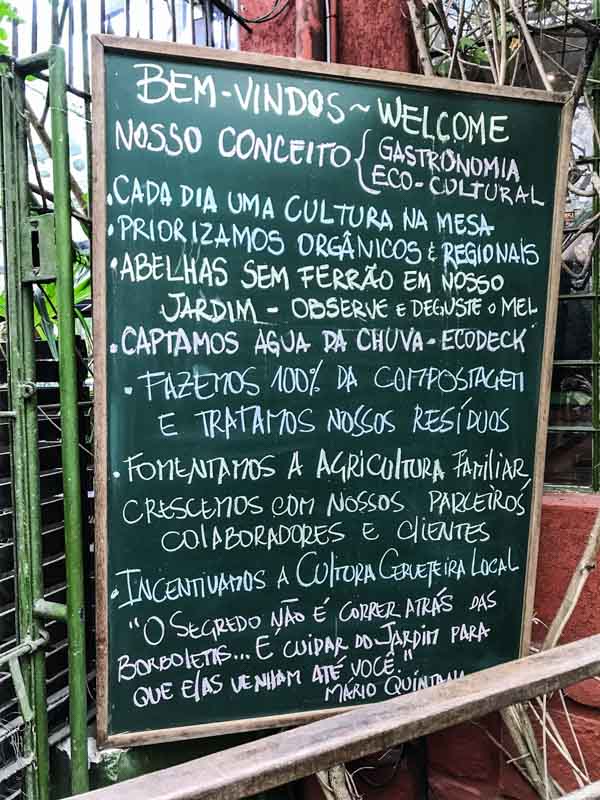 BEM-VINDOS ~ WELCOME
NOSSO CONCEITO { GASTRONOMIA
ECO-CULTURAL
• CADA DIA UMA CULTURA NA MESA
• PRIORIZAMOS ORGÂNICOS & REGIONAIS
• ABELHAS SEM FERRÃO EM NOSSO
JARDIM - OBSERVE E DEGUSTE O MEL
• CAPTAMOS ÁGUA DA CHUVA - ECODECK
• FAZEMOS 100% DA COMPOSTAGEM
E TRATAMOS NOSSOS RESÍDUOS
• FOMENTAMOS A AGRICULTURA FAMILIAR
CRESCEMOS COM NOSSOS PARCEIROS
COLABORADORES E CLIENTES
• INCENTIVAMOS A CULTURA CERVEJEIRA LOCAL
"O SEGREDO NÃO É CORRER ATRÁS DAS
BORBOLETAS... É CUIDAR DO JARDIM PARA
QUE ELAS VENHAM ATÉ VOCÊ."
MÁRIO QUINTANA